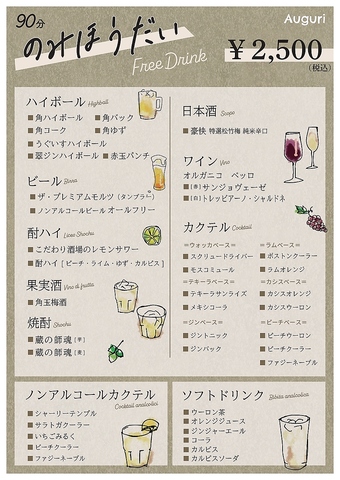 90分
のみほうだい
Free Drink
Auguri
¥2,500
(税込)
ハイボール Highball
■角ハイボール ■角パック
■角コーク ■角ゆず
■うぐいすハイボール
■翠ジンハイボール ■赤玉パンチ
ビール Birra
■ザ・プレミアムモルツ (タンブラー)
■ノンアルコールビール オールフリー
酎ハイ
■こだわり酒場のレモンサワー
■酎ハイ [ピーチ・ライム・ゆず・カルピス]
果実酒 Vino di frutta
■角玉梅酒
焼酎 Shochu
■蔵の師魂 [芋]
■蔵の師魂 [麦]
日本酒
■豪快 特選松竹梅 純米辛口
ワイン Vino
オルガニコ ペッロ
■[赤]サンジョヴェーゼ
■[白]トレッビアーノ・シャルドネ
カクテル Cocktail
=ウォッカベース=
■スクリュードライバー
■モスコミュール
=テキーラベース=
■テキーラサンライズ
■メキシコーラ
=ジンベース=
■ジントニック
■ジンバック
=ラムベース=
■ボストンクーラー
■ラムオレンジ
=カシスベース=
■カシスオレンジ
■カシスウーロン
=ピーチベース=
■ピーチウーロン
■ピーチクーラー
■ファジーネーブル
ノンアルコールカクテル
Cocktail analcolici
■シャーリーテンプル
■サラトガクーラー
■いちごみるく
■ピーチクーラー
■ファジーネーブル
ソフトドリンク
Bibita analcolica
■ウーロン茶
■オレンジジュース
■ジンジャーエール
■コーラ
■カルピス
■カルピスソーダ